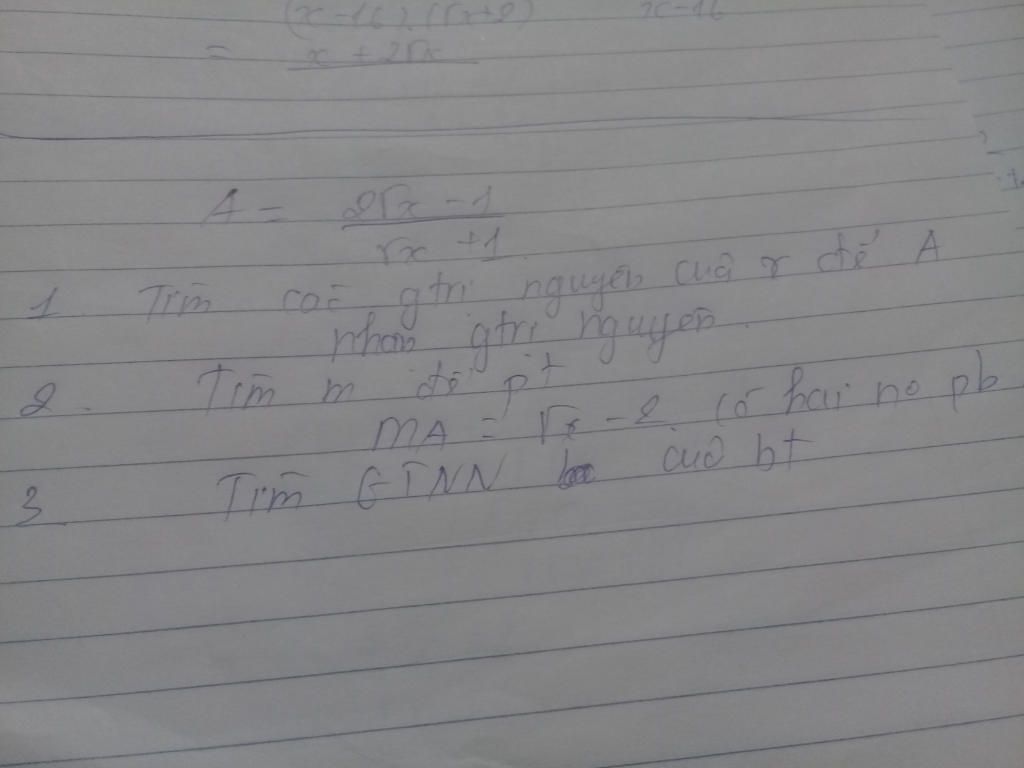 (x-16).(√x+2) x-16
= x + 2√x
A = 2√x - 1
√x + 1
1 Tìm các gtrị nguyên của x để A
nhận gtrị nguyên.
2. Tìm m để pt
mA = √x - 2 có hai no pb
3. Tìm GTNN của bt